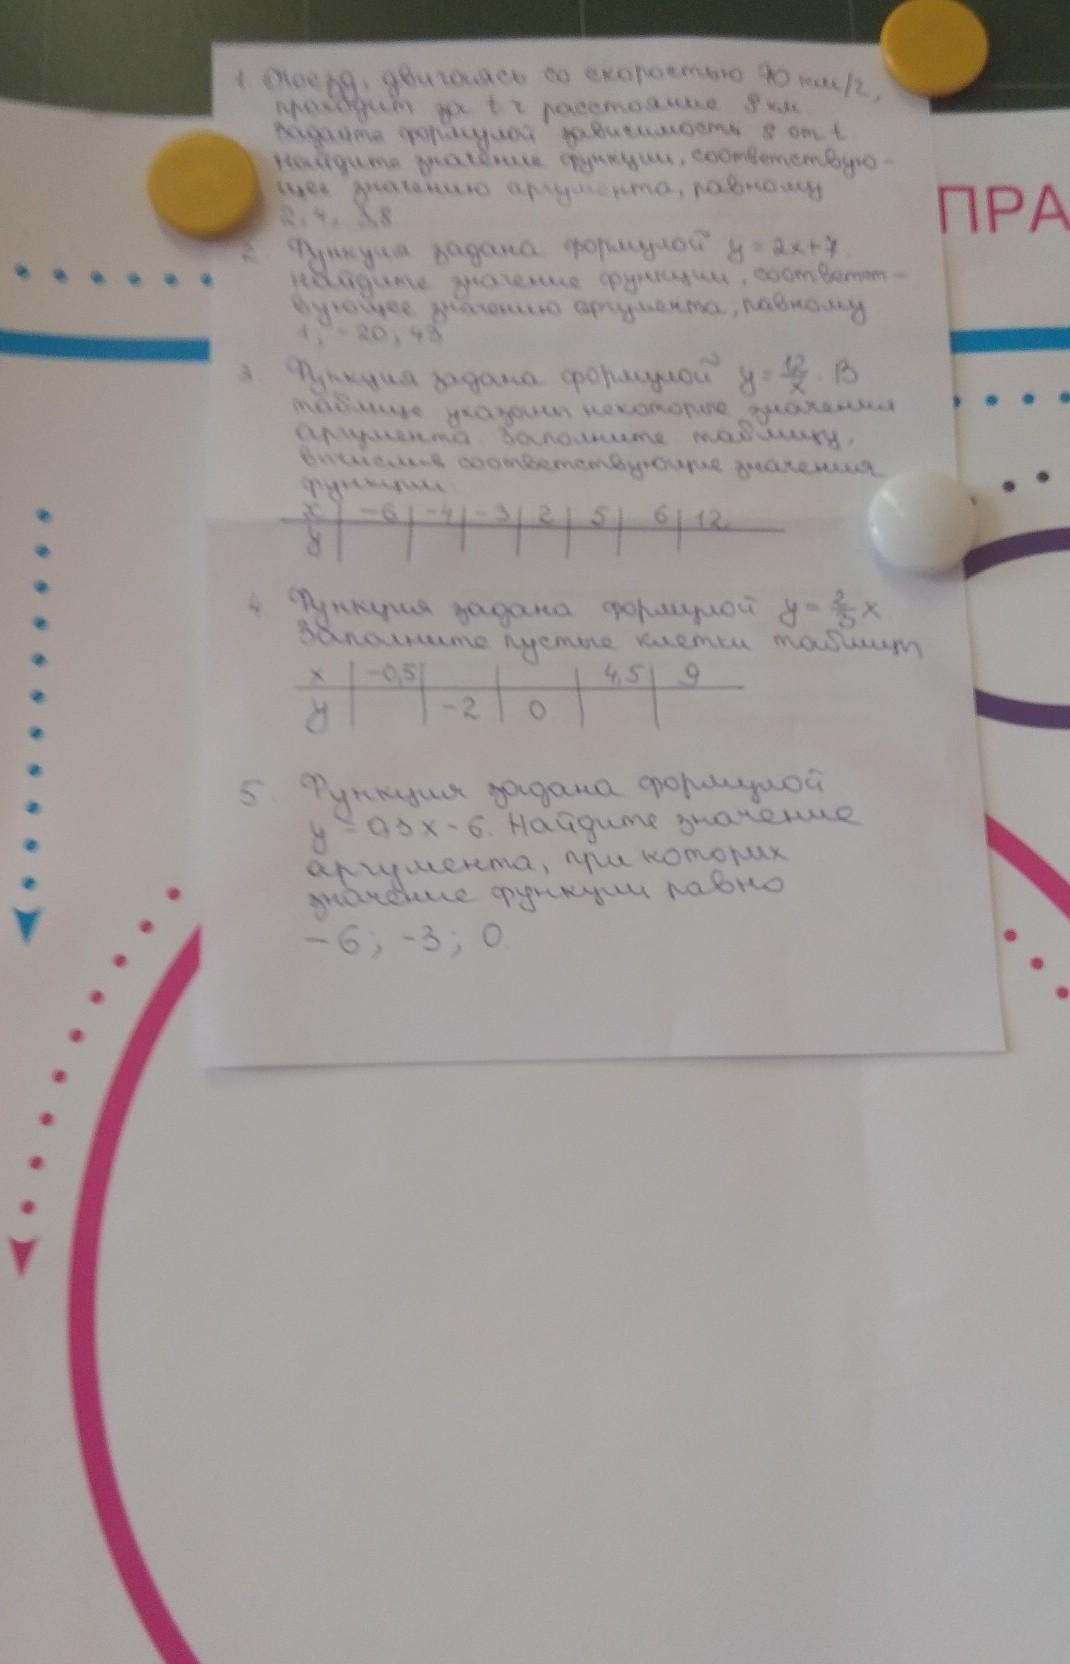 1 Поезд, двигаясь со скоростью 70 км/ч,
проходит за t ч расстояние s км.
Задайте формулой зависимость s от t
Найдите значение функции, соответствую-
щее значению аргумента, равному
2,4; 3,8
2. Функция задана формулой y = 2x+7.
Найдите значение функции, соответст-
вующее значению аргумента, равному
1; -20; 43
3. Функция задана формулой y = 12/x. В
таблице указаны некоторые значения
аргумента. Заполните таблицу,
вписывая соответствующие значения
функции.
x -6 -4 -3 2 5 6 12
y
4. Функция задана формулой y = x
Заполните пустые клетки таблицы
x -0,5 4,5 9
y -2 0
5. Функция задана формулой
y = 0,3x - 6. Найдите значение
аргумента, при которых
значение функции равно
-6; -3; 0
ПРА